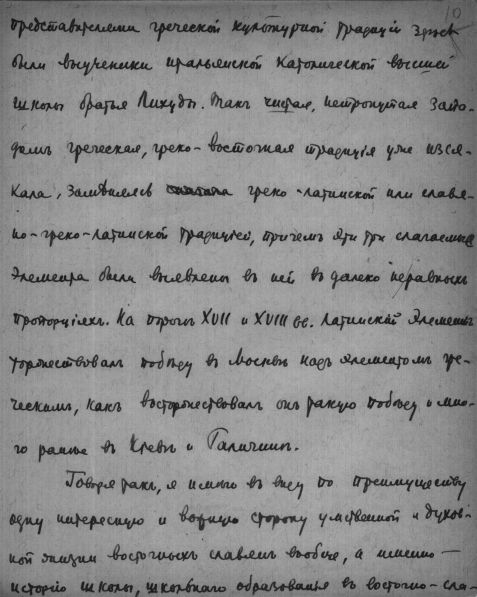 10
представителями греческой культурной традиціи здѣсь
были выученики итальянской католической высшей
школы братья Лихуды. Такъ чистая, нетронутая Запа-
домъ греческая, греко-восточная традиція уже изся-
кала, замѣняясь греко-латинской или славя-
но-греко-латинской традиціей, причемъ эти три слагаемые
элемента были выявлены въ ней въ далеко неравныхъ
пропорціяхъ. На порогѣ XVII и XVIII вв. латинскій элементъ
торжествовалъ побѣду въ Москвѣ надъ элементомъ гре-
ческимъ, какъ восторжествовалъ онъ такую побѣду и мно-
го ранѣе въ Кіевѣ и Галичинѣ.
Говоря такъ, я имѣю въ виду по преимуществу
одну интересную и важную сторону умственной и духов-
ной жизни восточныхъ славянъ вообще, а именно —
исторію школы, школьнаго образованія въ восточно-сла-